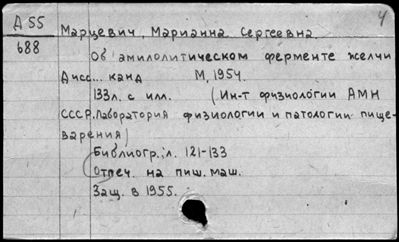 Д 55
688
4
Марцевич, Марианна Сергеевна.
Об амилолитическом ферменте желчи
Дисс... канд М, 1954.
133л. с илл. (Ин-т физиологии АМН
СССР. Лаборатория физиологии и патологии пище-
варения)
Библиогр.: л. 121-133
Отпеч. на пиш. маш.
Защ. в 1955.